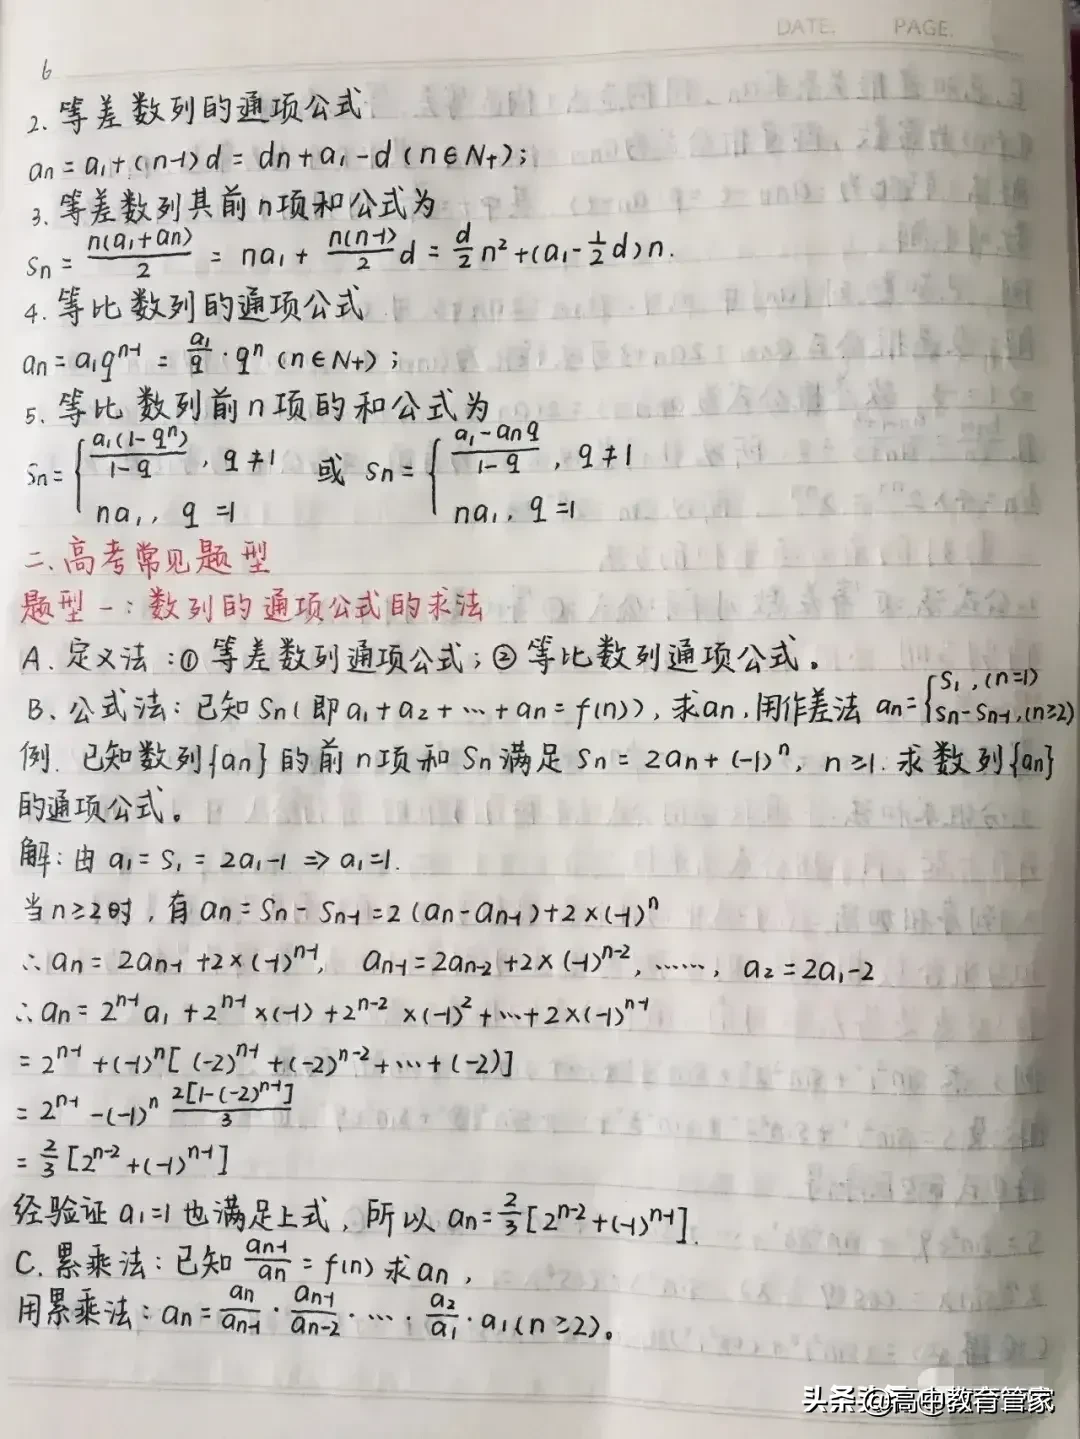 DATE. PAGE.
6
2. 等差数列的通项公式
an = a₁+(n-1)d = dn+a₁-d (n∈N₊);
3. 等差数列其前n项和公式为
Sn = n(a₁+an)/2 = na₁ + n(n-1)/2 d = d/2 n² + (a₁-1/2 d)n.
4. 等比数列的通项公式
an = a₁qⁿ⁻¹ = a₁/q · qⁿ (n∈N₊);
5. 等比数列前n项的和公式为
Sn = { a₁(1-qⁿ)/(1-q), q≠1 或 Sn = { (a₁-anq)/(1-q), q≠1
na₁, q=1 na₁, q=1
二、高考常见题型
题型一:数列的通项公式的求法
A、定义法:① 等差数列通项公式;② 等比数列通项公式。
B、公式法:已知Sn(即a₁+a₂+…+an=f(n)),求an,用作差法 an={S₁,(n=1) Sn-Sn-1,(n≥2)
例. 已知数列{an}的前n项和Sn满足Sn=2an+(-1)ⁿ, n≥1. 求数列{an}
的通项公式。
解:由 a₁=S₁=2a₁-1 ⇒ a₁=1.
当n≥2时,有 an=Sn-Sn-1=2(an-an-1)+2×(-1)ⁿ
∴ an=2an-1+2×(-1)ⁿ⁻¹, an-1=2an-2+2×(-1)ⁿ⁻², ……, a₂=2a₁-2
∴ an=2ⁿ⁻¹a₁+2ⁿ⁻¹×(-1)+2ⁿ⁻²×(-1)²+…+2×(-1)ⁿ⁻¹
=2ⁿ⁻¹+(-1)ⁿ[(-2)ⁿ⁻¹+(-2)ⁿ⁻²+…+(-2)]
=2ⁿ⁻¹-(-1)ⁿ 2[1-(-2)ⁿ⁻¹]/3
=2/3[2ⁿ⁻²+(-1)ⁿ⁻¹]
经验证a₁=1也满足上式,所以 an=2/3[2ⁿ⁻²+(-1)ⁿ⁻¹].
C. 累乘法:已知 an-1/an=f(n) 求an,
用累乘法:an=an/an-1 · an-1/an-2 · … · a₂/a₁ · a₁(n≥2)。
@高中教育管家